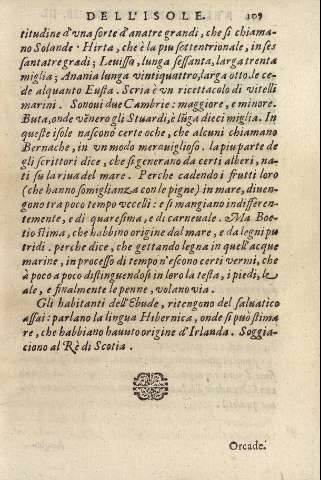 DELL'ISOLE. 109
titudine d'vna sorte d'anatre grandi, che si chiama-
no Solande. Hirta, che è la piu settentrionale, in ses
santatre gradi; Leuissa, lunga sessanta, larga trenta
miglia; Anania lunga vintiquattro, larga otto. le ce-
de alquanto Eusta. Scria è vn ricettacolo di vitelli
marini. Sonoui due Cambrie: maggiore, e minore.
Buta, onde vẽnero gli Stuardi, è lũga dieci miglia. In
queste isole nascono certe oche, che alcuni chiamano
Bernache, in vn modo merauiglioso. la piu parte de
gli scrittori dice, che si generano da certi alberi, na-
ti su la riua del mare. Perche cadendo i frutti loro
(che hanno somiglianza con le pigne) in mare, diuen-
gono tra poco tempo vccelli: e si mangiano indifferen-
temente, e di quaresima, e di carneuale. Ma Boe-
tio stima, che habbino origine dal mare, e da legni pu
tridi. perche dice, che gettando legna in quell'acque
marine, in processo di tempo n'escono certi vermi, che
à poco a poco distinguendosi in loro la testa, i piedi, le
ale, e finalmente le penne, volano via.
Gli habitanti dell'Ebude, ritengono del saluatico
assai: parlano la lingua Hibernica, onde si può stima
re, che habbiano hauuto origine d'Irlanda. Soggia-
ciono al Rè di Scotia.
Orcade.